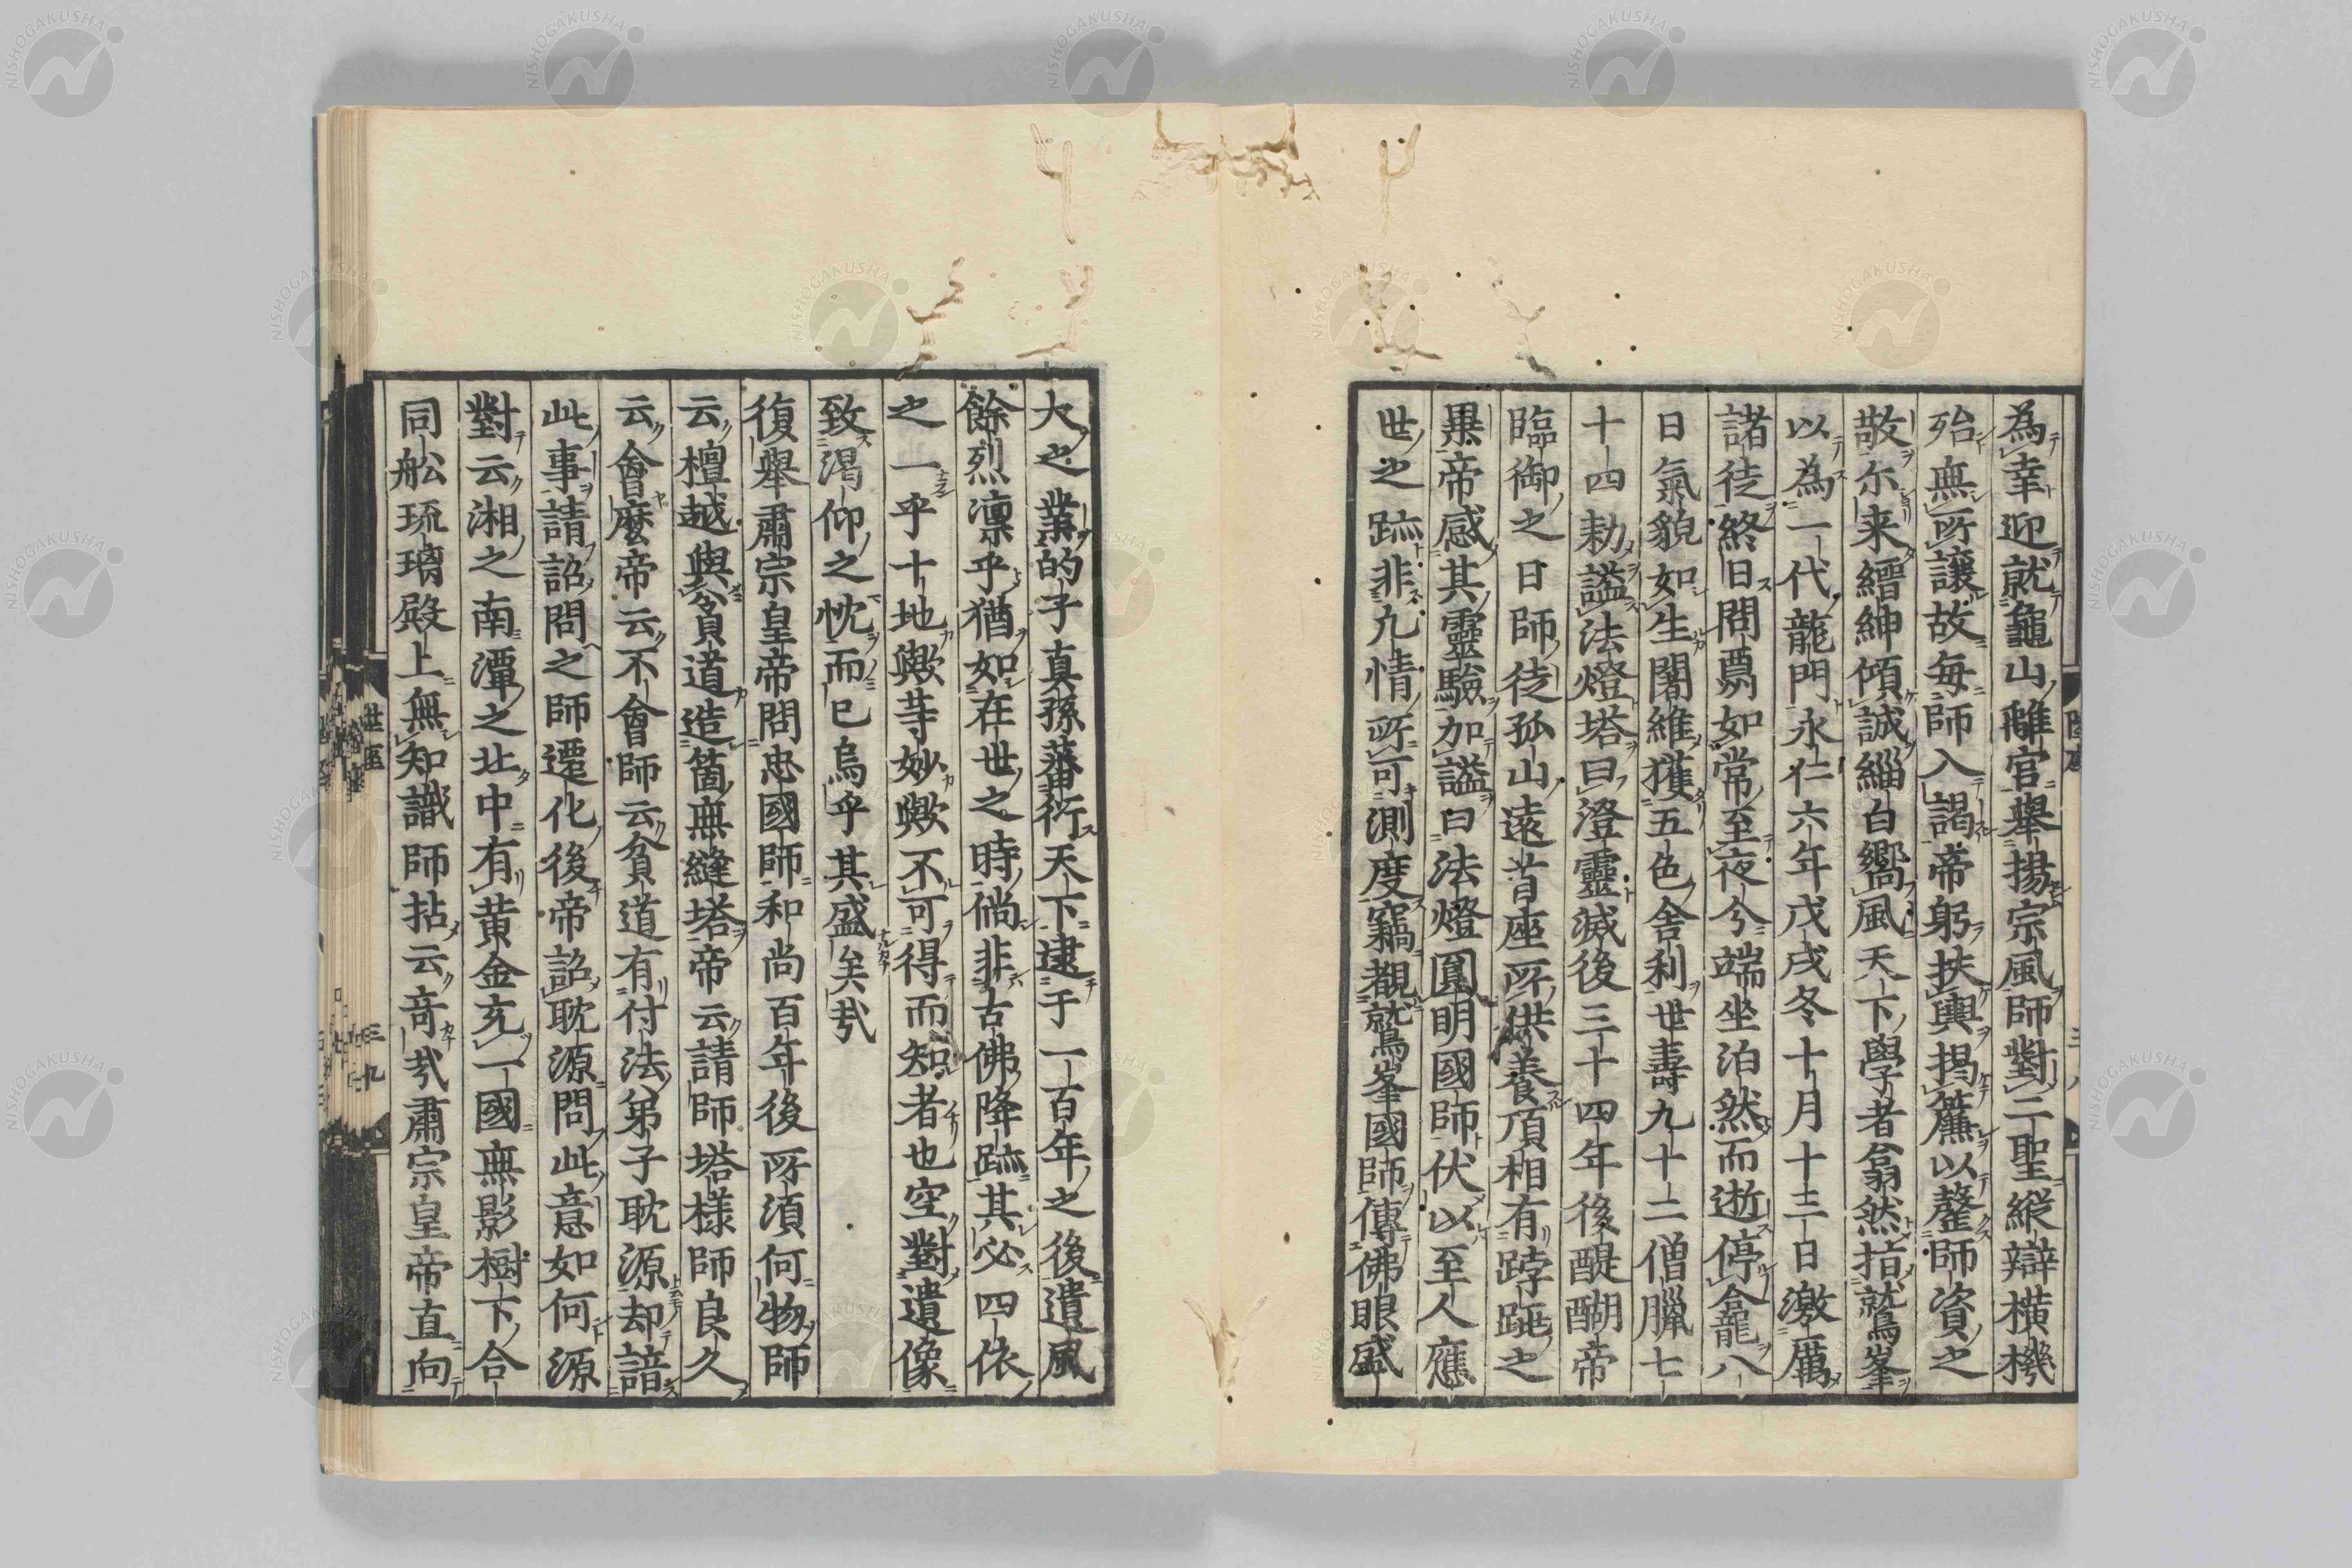 為幸迎就龜山離宮舉揚宗風師對二聖縱辯橫機
殆無所讓故每師入謁帝躬扶輿揭簾以鼇師資之
敬尓来縉紳傾誠緇白嚮風天下學者翕然指鷲峯
以為一代龍門永仁六年戊戌冬十月十三日激厲
諸徒終日問酬如常至夜分端坐泊然而逝停龕八
日氣貌如生闍維獲五色舍利世壽九十二僧臘七
十四勅謚法燈塔曰澄靈滅後三十四年後醍醐帝
臨御之日師徒孤山遠首座所供養頂相有跨跳之
異帝感其靈驗加謚曰法燈圓明國師伏以至人應
世之跡非九情所可測度竊覩鷲峯國師傳佛眼盛
大之業的子真孫蕃衍天下逮于一百年之後遺風
餘烈凛乎猶如在世之時倘非古佛降跡其必四依
之一乎十地歟等妙歟不可得而知者也空對遺像
致渇仰之忱而已烏乎其盛矣哉
復舉肅宗皇帝問忠國師和尚百年後所須何物師
云檀越與貧道造箇無縫塔帝云請師塔樣師良久
云會麼帝云不會師云貧道有付法弟子耽源却諳
此事請詔問之師遷化後帝詔耽源問此意如何源
對云湘之南潭之北中有黄金充一國無影樹下合
同舩琉璃殿上無知識師拈云奇哉肅宗皇帝直向
三八
三九
NISHOGAKUSHA